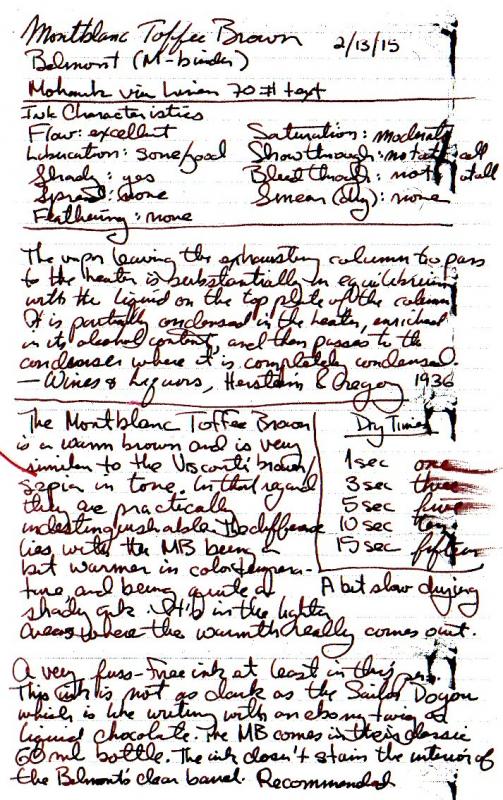 Montblanc Toffee Brown 2/13/15
Belmont (M-binder)
Mohawk via Linen 70# text
Ink Characteristics
Flow: excellent Saturation: moderate
Lubrication: some/good Showthrough: not at all
Shady: yes Bleedthrough: not at all
Spread: none Smear (dry): none
Feathering: none
The vapor leaving the exhausting column to pass
to the heater is substantially in equilibrium
with the liquid on the top plate of the column.
It is partially condensed in the heater, enriched
in its alcohol content, and then passes to the
condenser where it is completely condensed.
— Wines & Liquors, Herstein & Gregory 1936
The Montblanc Toffee Brown
is a warm brown and is very
similar to the Visconti brown/
sepia in tone. In that regard
they are practically
indestinguishable. The difference
lies with the MB being a
bit warmer in color tempera-
ture, and being quite a
shady ink. It's in the lighter
areas where the warmth really comes out.
Dry Times
1 sec one
3 sec three
5 sec five
10 sec ten
15 sec fifteen
A bit slow drying
A very fuss-free ink at least in this pen.
This ink is not as dark as the Sailor Doyou
which is like writing with an ebony twig and
liquid chocolate. The MB comes in their classic
60 ml bottle. The ink doesn't stain the interior of
the Belmont's clear barrel. Recommended